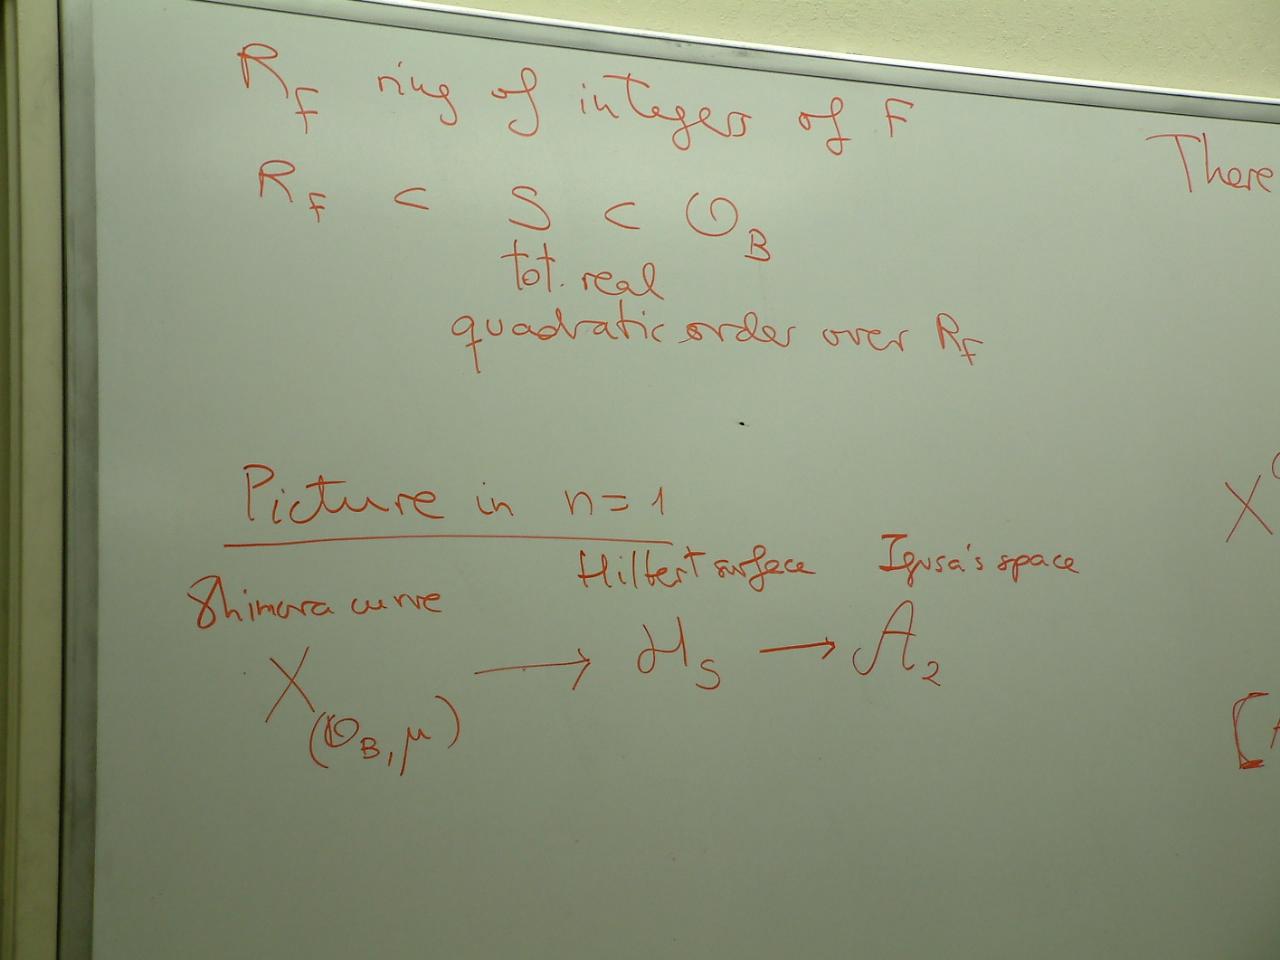 R_F ring of integers of F
R_F ⊂ S ⊂ O_B
tot. real
quadratic order over R_F
Picture in n=1
Shimura curve Hilbert surface Igusa's space
X_(O_B, μ) → H_S → A_2
There
X
[